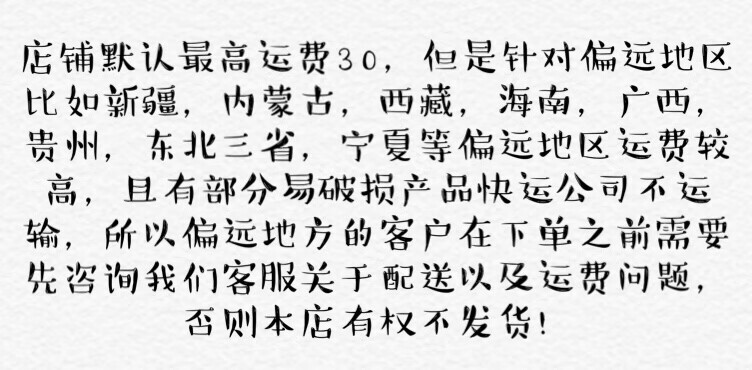 店铺默认最高运费30，但是针对偏远地区
比如新疆，内蒙古，西藏，海南，广西，
贵州，东北三省，宁夏等偏远地区运费较
高，且有部分易破损产品快运公司不运
输，所以偏远地方的客户在下单之前需要
先咨询我们客服关于配送以及运费问题，
否则本店有权不发货！